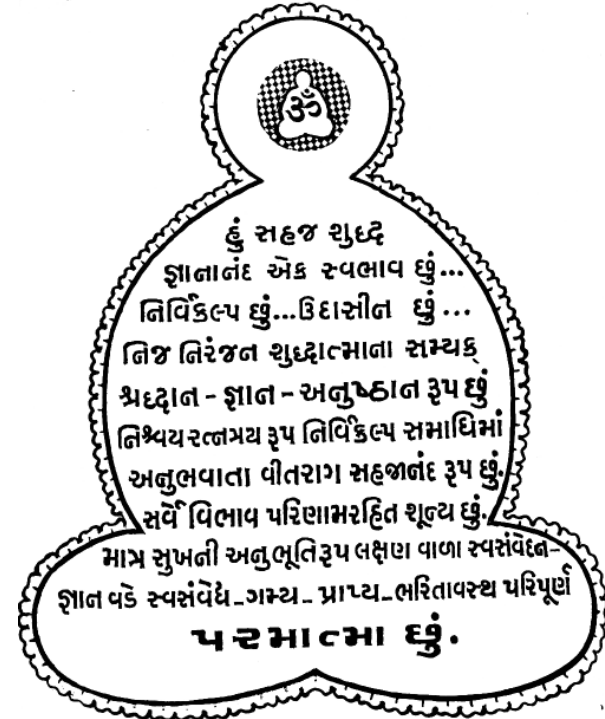 ૐ
હું સહજ શુદ્ધ
જ્ઞાનાનંદ એક સ્વભાવ છું...
નિર્વિકલ્પ છું...ઉદાસીન છું...
નિજ નિરંજન શુદ્ધાત્માના સમ્યક્
શ્રદ્ધાન - જ્ઞાન - અનુષ્ઠાન રૂપ છું
નિશ્ચયરત્નત્રય રૂપ નિર્વિકલ્પ સમાધિમાં
અનુભવાતા વીતરાગ સહજાનંદ રૂપ છું.
સર્વે વિભાવ પરિણામરહિત શૂન્ય છું.
માત્ર સુખની અનુભૂતિરૂપ લક્ષણ વાળા સ્વસંવેદન-
જ્ઞાન વડે સ્વસંવેદ્યે-ગમ્ય- પ્રાપ્ય-ભરિતાવસ્થ પરિપૂર્ણ
પરમાત્મા છું.